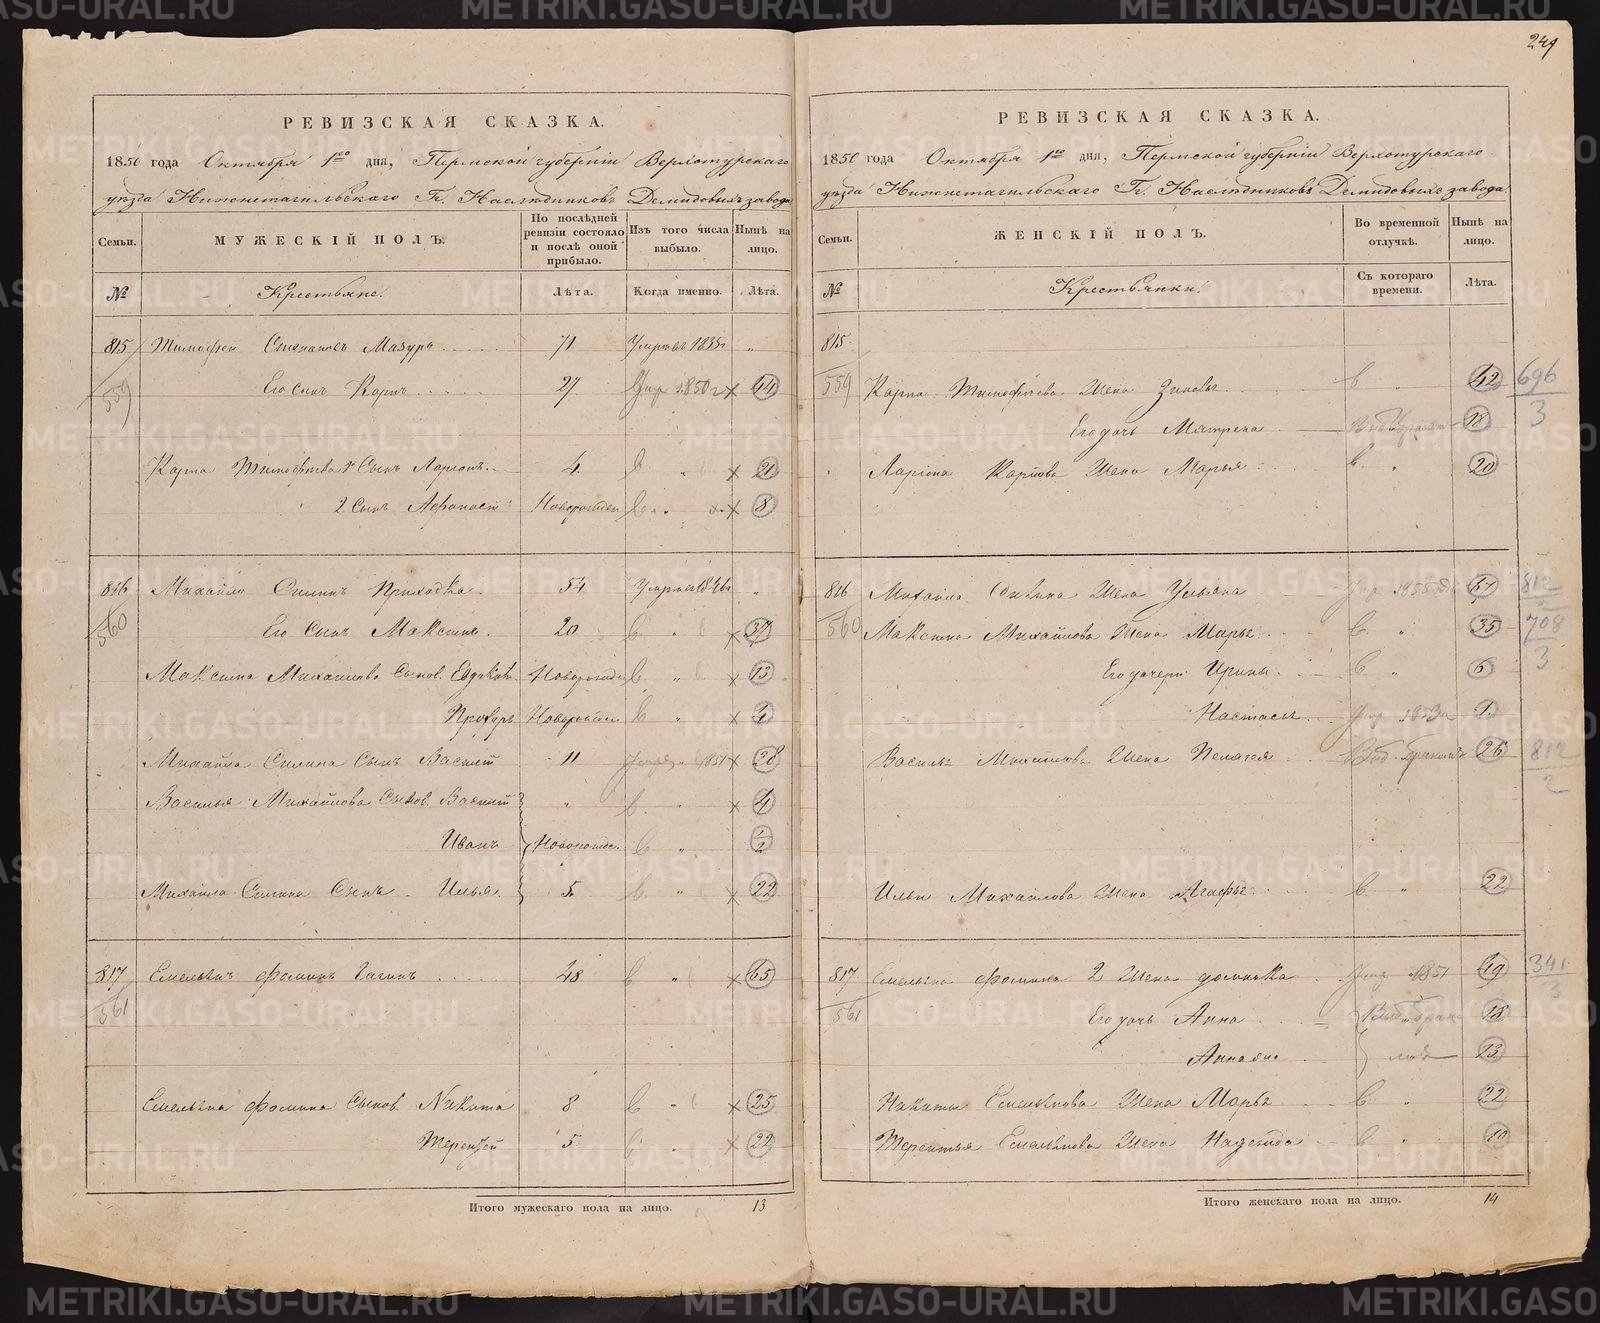 249
РЕВИЗСКАЯ СКАЗКА.
1850 года Октября 1го дня, Пермской губерніи Верхотурскаго
уѣзда Нижнетагильскаго Гг. Наслѣдниковъ Демидовыхъ завода
Семьи.
МУЖЕСКІЙ ПОЛЪ.
По послѣдней ревизіи состояло и послѣ оной прибыло.
Изъ того числа выбыло.
Нынѣ на лицо.
№
Крестьяне.
Лѣта.
Когда именно.
Лѣта.
815 Тимофей Степановъ Мазуръ 71 Умръ въ 1835 "
559 Его сынъ Карпъ 27 Умр 1850 44
Карпа Тимофѣева 1 Сынъ Ларіонъ 4 21
2 Сынъ Афонасій Новорожден 8
816 Михайло Силинъ Приходка 54 "
560 Его Сынъ Максимъ 20 37
Максима Михайлова Сынов. Евдоким Новорожден 13
Прохоръ Новорожден 4
Михайла Силина Сынъ Василій 11 1851 28
Василья Михайлова Сынов. Василій " 4
Иванъ Новорожден 1/2
Михайла Силина Сынъ Илья 5 22
817 Емельянъ Фоминъ Гагинъ 48 65
561
Емельяна Фомина Сынов. Никита 8 25
Терентей 5 22
Итого мужескаго пола на лицо. 13
РЕВИЗСКАЯ СКАЗКА.
1850 года Октября 1го дня, Пермской губерніи Верхотурскаго
уѣзда Нижнетагильскаго Гг. Наслѣдниковъ Демидовыхъ завода
Семьи.
ЖЕНСКІЙ ПОЛЪ.
Во временной отлучкѣ.
Нынѣ на лицо.
№
Крестьянки.
Съ котораго времени.
Лѣта.
815
559 Карпа Тимофѣева Жена Зиновья 42 696/3
Его дочь Матрена 18
Ларіона Карпова Жена Марья 20
816 Михайла Силина Жена Ульяна 67 812
560 Максима Михайлова Жена Марья 35 708/3
Его дочери Ирина 6
Настасья Умр 1853 1
Василья Михайлова Жена Пелагея 26 812/2
Ильи Михайлова Жена Агафья 22
817 Емельяна Фомина 2 Жена Домника Умр 1851 49 341/3
561 Его дочь Анна 18
Анна 13
Никиты Емельянова Жена Марья 22
Терентья Емельянова Жена Надежда 19
Итого женскаго пола на лицо. 14
METRIKI.GASO-URAL.RU